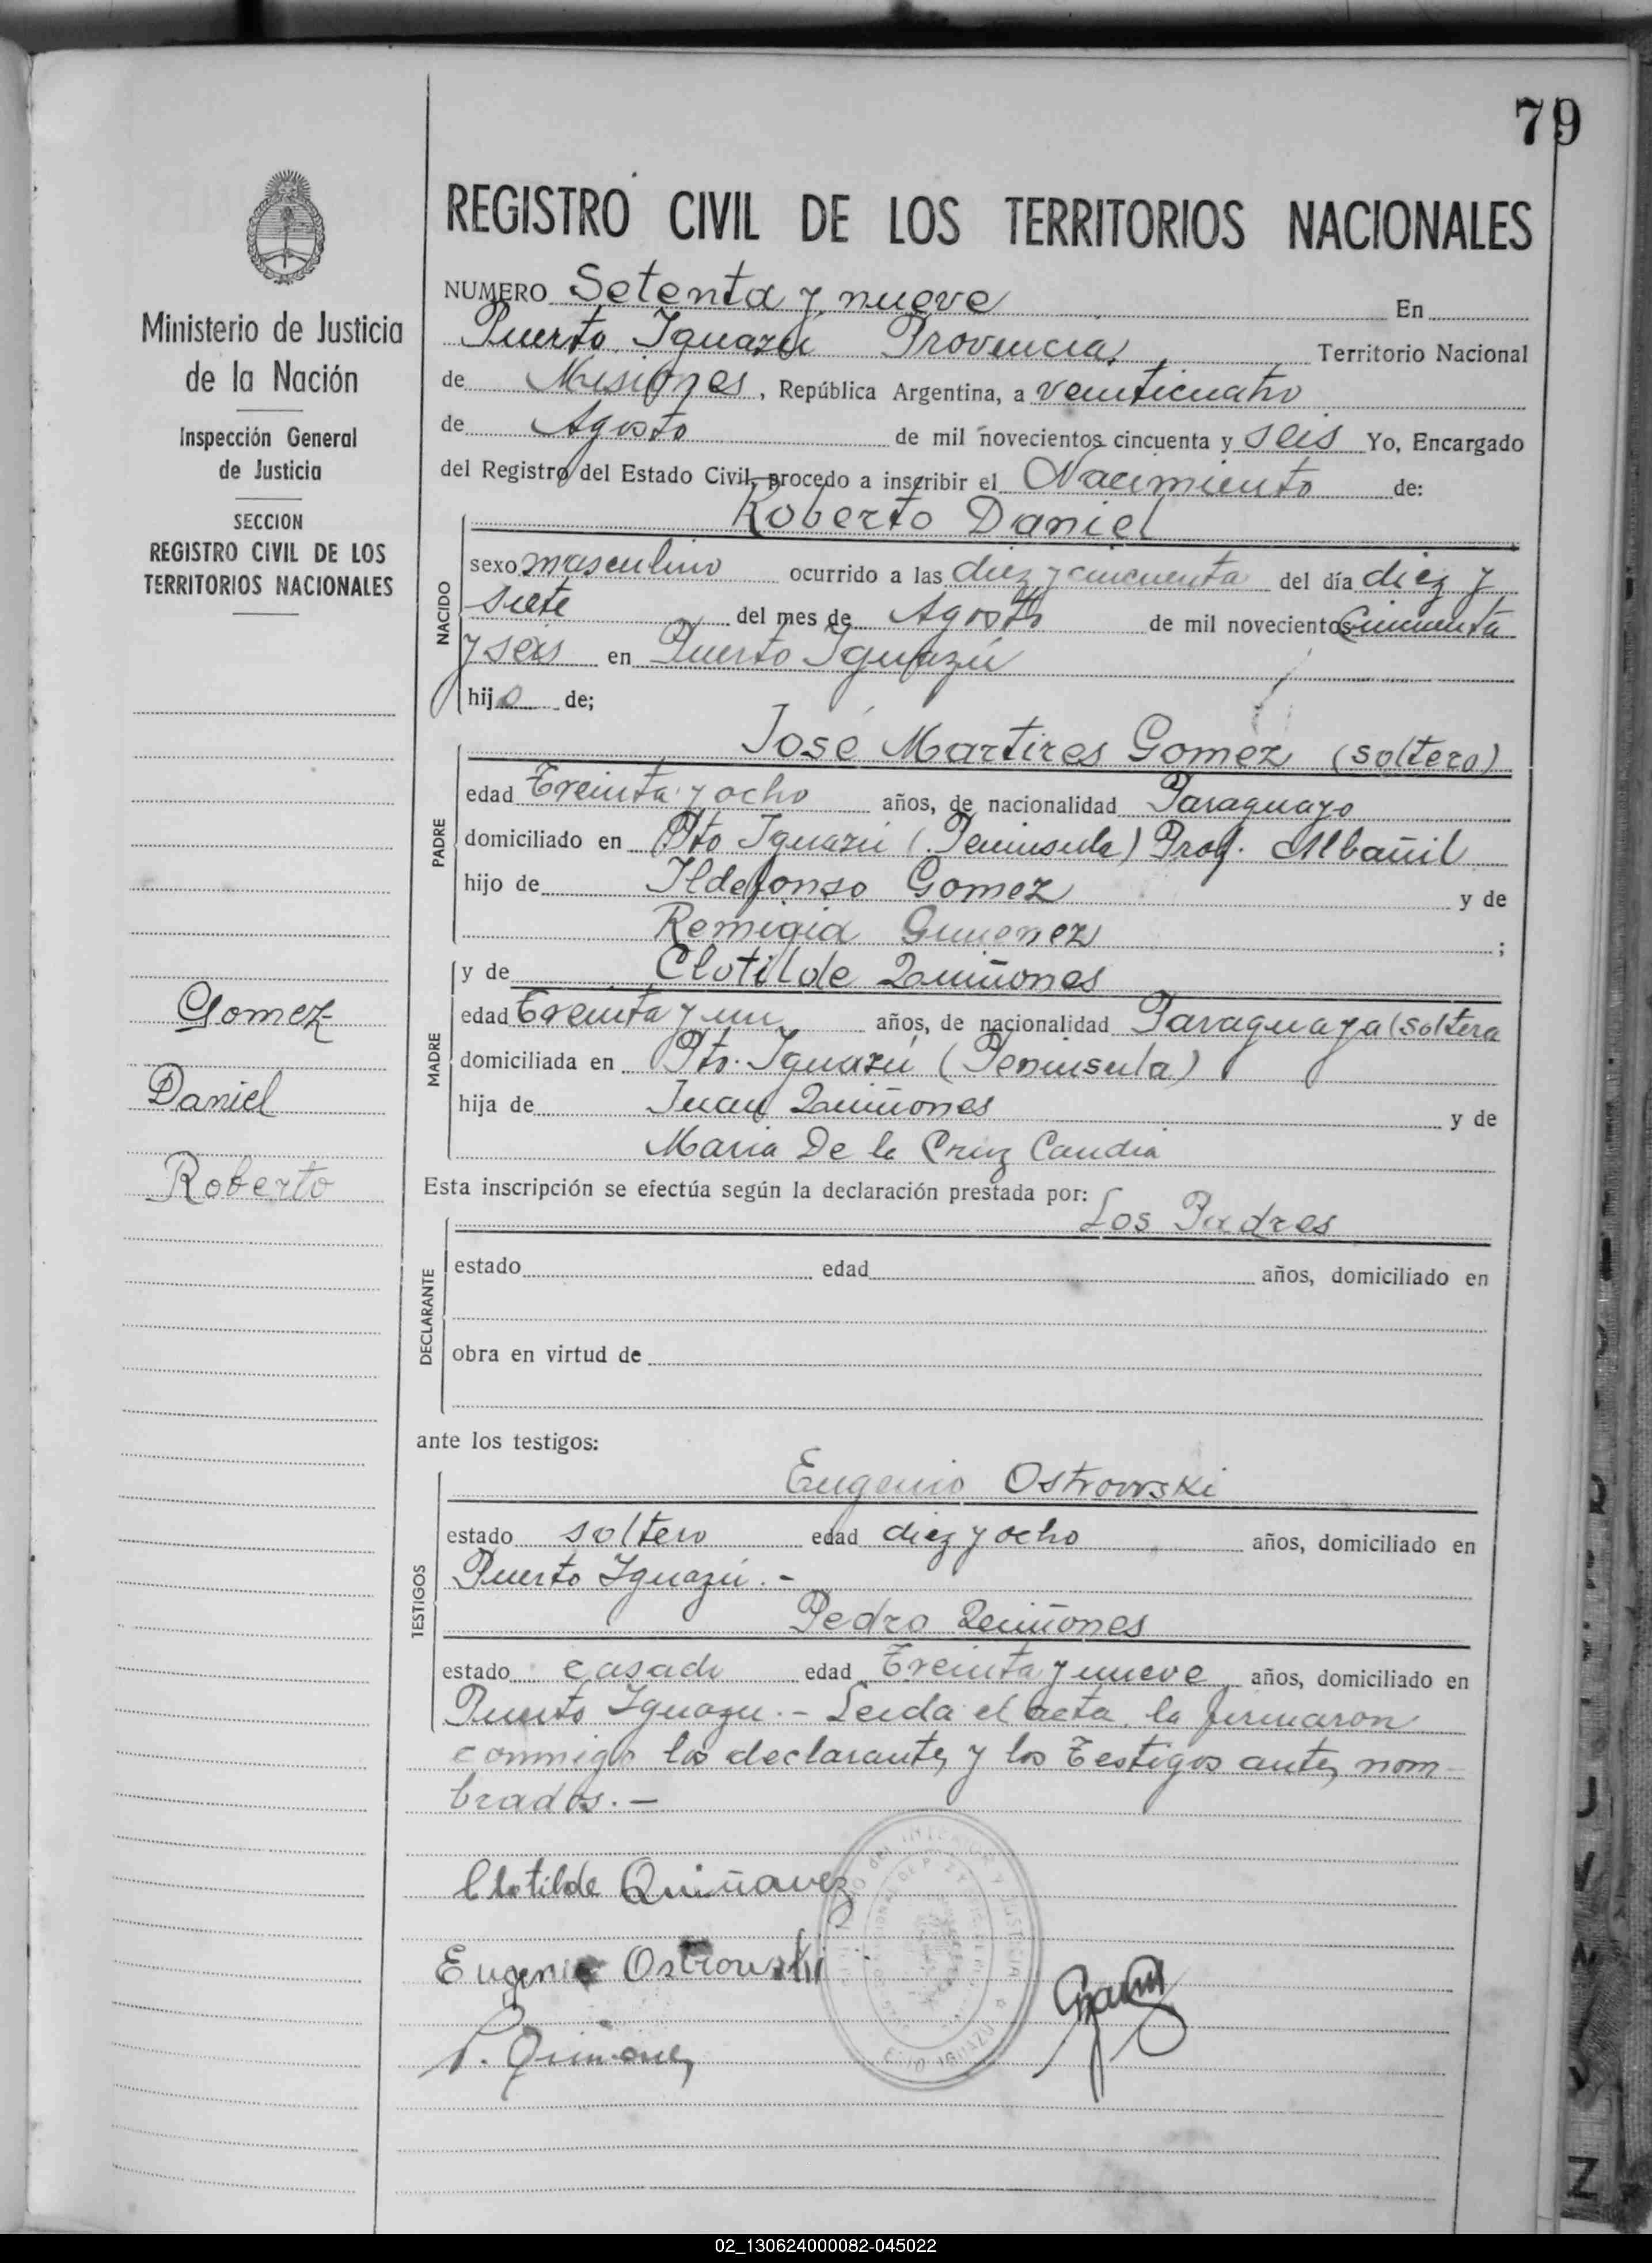 79
REGISTRO CIVIL DE LOS TERRITORIOS NACIONALES
Ministerio de Justicia
de la Nación
Inspección General
de Justicia
SECCION
REGISTRO CIVIL DE LOS
TERRITORIOS NACIONALES
Gomez
Daniel
Roberto
NUMERO Setenta y nueve En
Puerto Iguazú Provincia, Territorio Nacional
de Misiones, República Argentina, a veinticuatro
de Agosto de mil novecientos cincuenta y seis Yo, Encargado
del Registro del Estado Civil, procedo a inscribir el Nacimiento de:
Roberto Daniel
NACIDO
sexo masculino ocurrido a las diez y cincuenta del día diez y
siete del mes de Agosto de mil novecientos cincuenta
y seis en Puerto Iguazú
hijo de;
José Martires Gomez (soltero)
PADRE
edad Treinta y ocho años, de nacionalidad Paraguayo
domiciliado en Pto Iguazú (Peninsula) Prof. Albañil
hijo de Ildefonso Gomez y de
Remigia Gimenez ;
y de Clotilde Quiñones
MADRE
edad Treinta y un años, de nacionalidad Paraguaya (soltera
domiciliada en Pto. Iguazú (Peninsula)
hija de Juan Quiñones y de
Maria De la Cruz Candia
Esta inscripción se efectúa según la declaración prestada por:
Los Padres
DECLARANTE
estado edad años, domiciliado en
obra en virtud de
ante los testigos:
Eugenio Ostrowski
TESTIGOS
estado soltero edad diez y ocho años, domiciliado en
Puerto Iguazú.-
Pedro Quiñones
estado casado edad Treinta y nueve años, domiciliado en
Puerto Iguazu.- Leida el acta, la firmaron
conmigo los declarantes y los Testigos antes nom-
brados.-
Clotilde Quiñonez
Eugenio Ostrowski
P. Quiñones
02_130624000082-045022